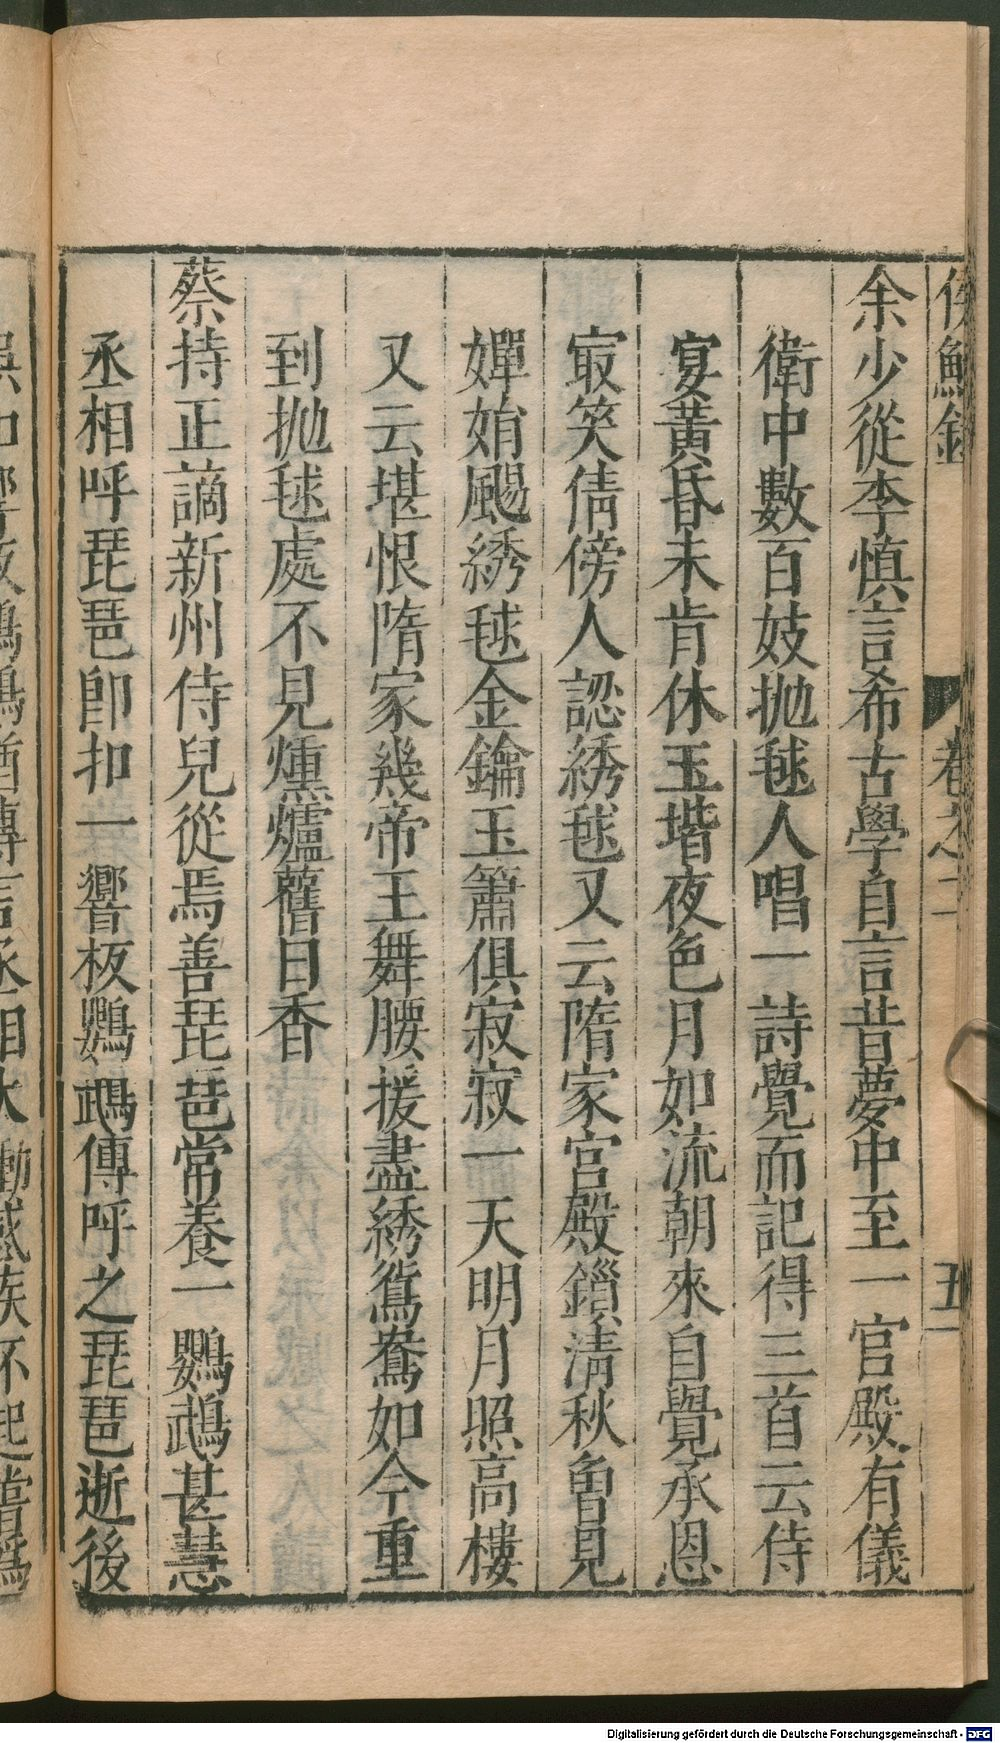 侯鯖錄 卷之二 五
余少從李慎言希古學自言昔夢中至一官殿有儀
衛中數百妓抛毬人唱一詩覺而記得三首云侍
宴黃昏未肯休玉堦夜色月如流朝來自覺承恩
㝡笑倩傍人認綉毬又云隋家宮殿鎖清秋曾見
嬋娟颺綉毬金鑰玉簫俱寂寂一天明月照高樓
又云堪恨隋家幾帝王舞腰㨪盡綉鴛鴦如今重
到抛毬處不見燻爐舊日香
蔡持正謫新州侍兒從焉善琵琶常養一鸚鵡甚慧
丞相呼琵琶卽扣一響板鸚鵡傳呼之琵琶逝後